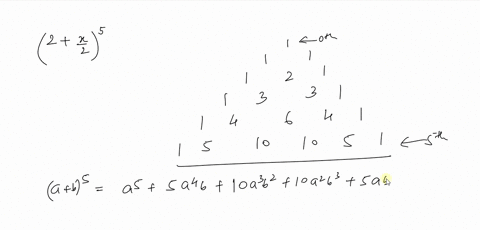 (2 + x/2)^5
1 ← 0th
1 1
1 2 1
1 3 3 1
1 4 6 4 1
1 5 10 10 5 1 ← 5th
(a+b)^5 = a^5 + 5a^4b + 10a^3b^2 + 10a^2b^3 + 5ab